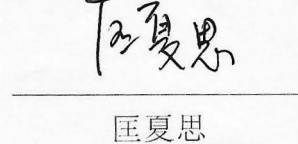 匡夏思
匡夏思